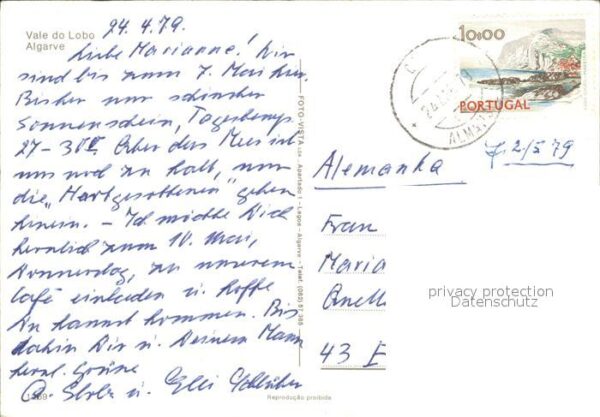 Vale do Lobo
Algarve
24.4.79.
Liebe Marianne! Wir
sind bis zum 7. Mai hier.
Bisher nur schönster
Sonnenschein, Tagestemp.
27-30° Aber das Meer ist
uns noch zu kalt, nur
die "Hartgesottenen" gehen
hinein. - Ich möchte Dich
herzlich zum 10. Mai,
Donnerstag, zu unserem
Café einladen u. hoffe
Du kannst kommen. Bis
dahin Dir u. Deinem Mann
herzl. Grüße
u. Elli
FOTO-VISTA LDA. Apartado 1 - Lagos - Algarve - Telef. (082) 57 365
10$00
PORTUGAL
24
Alemanha
2/5 79
Frau
Maria
43 E
privacy protection
Datenschutz
Reprodução proibida